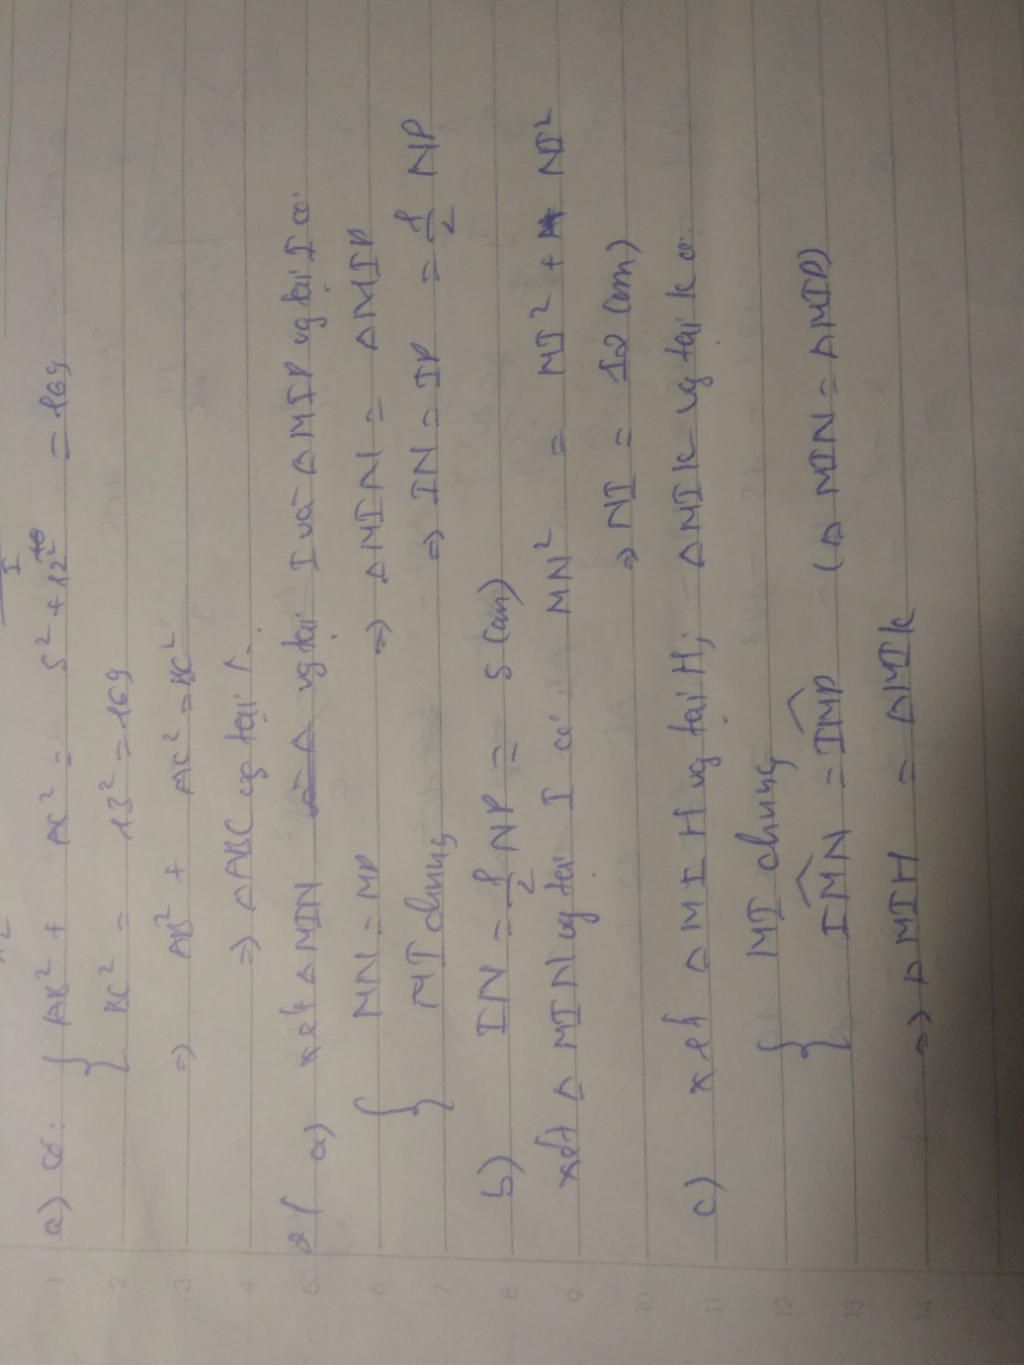 a) Có: { AB² + AC² = 5² + 12² = 169
BC² = 13² = 169
⇒ AB² + AC² = BC²
⇒ ΔABC vg tại A.
2/ a) xét ΔMIN vg tại I và ΔMIP vg tại I có:
{ MN = MP ⇒ ΔMIN = ΔMIP
MI chung ⇒ IN = IP = 1/2 NP
b) IN = 1/2 NP = 5 (cm)
xét ΔMIN vg tại I có: MN² = MI² + NI²
⇒ NI = 12 (cm)
c) xét ΔMIH vg tại H; ΔMIK vg tại K có:
{ MI chung
IMN = IMP (ΔMIN = ΔMIP)
⇒ ΔMIH = ΔMIK
1
2
3
4
5
6
7
8
9
10
11
12
13
14
15